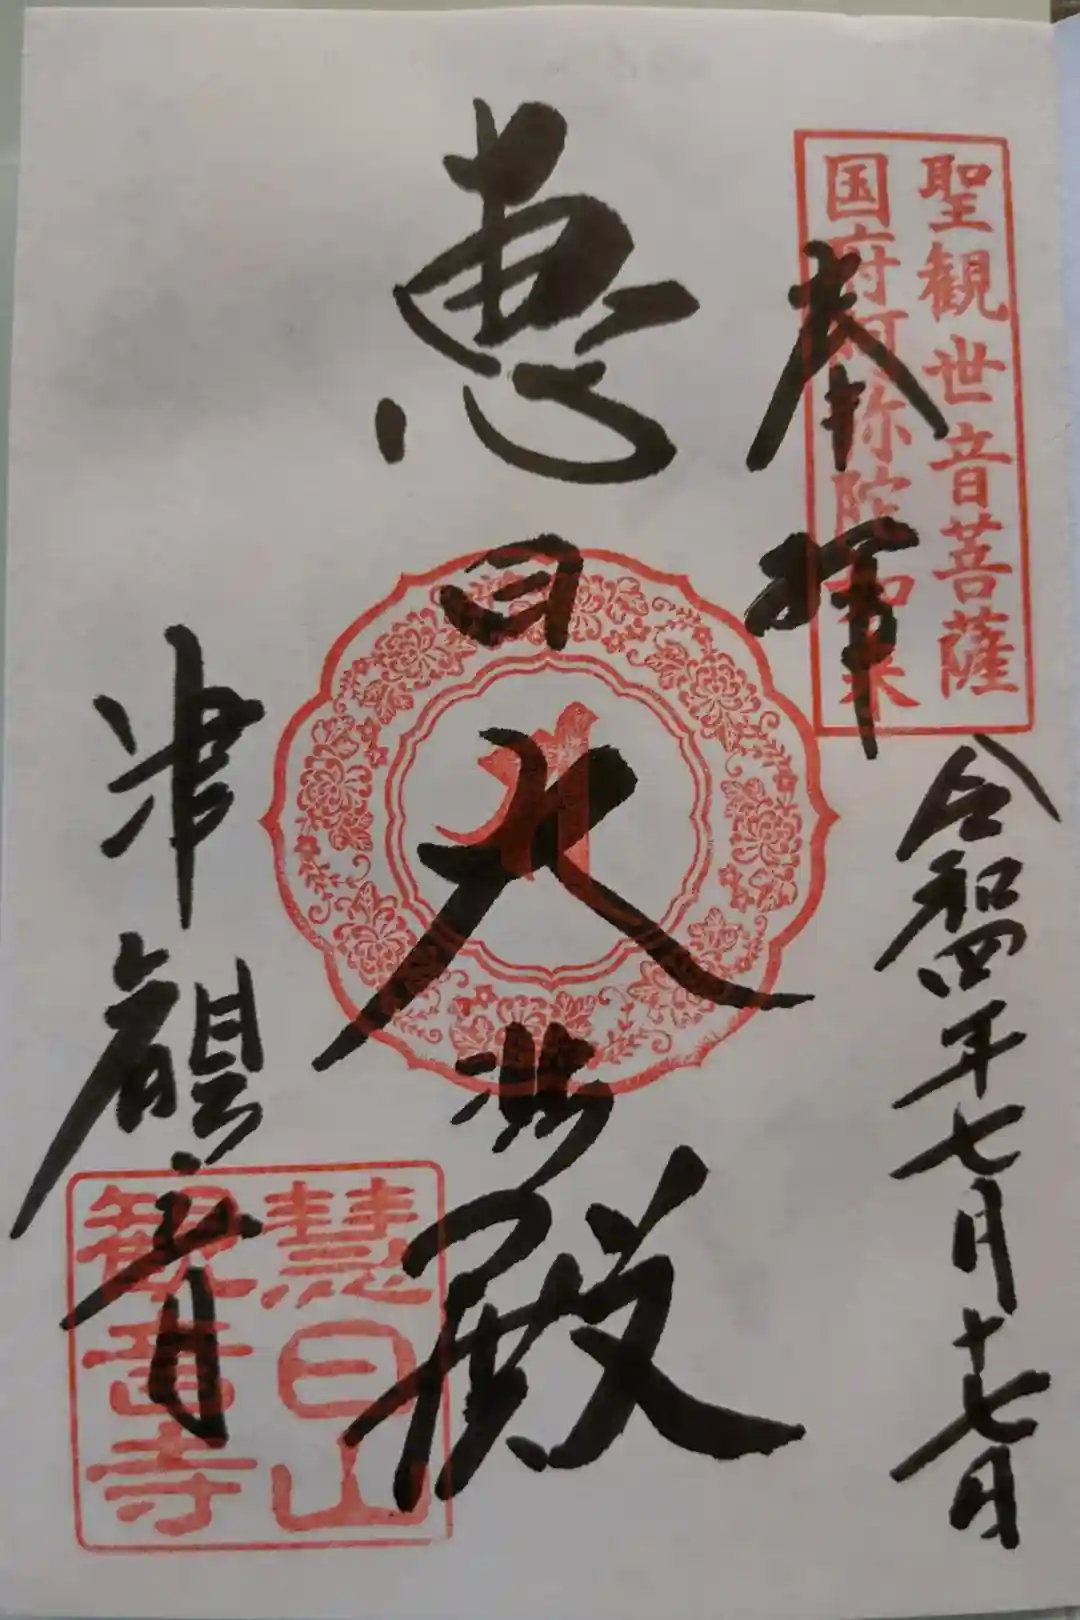 聖観世音菩薩
国府阿弥陀如来
奉拝
令和四年七月十七日
恵日
大悲殿
津観音
慧日山
観音寺